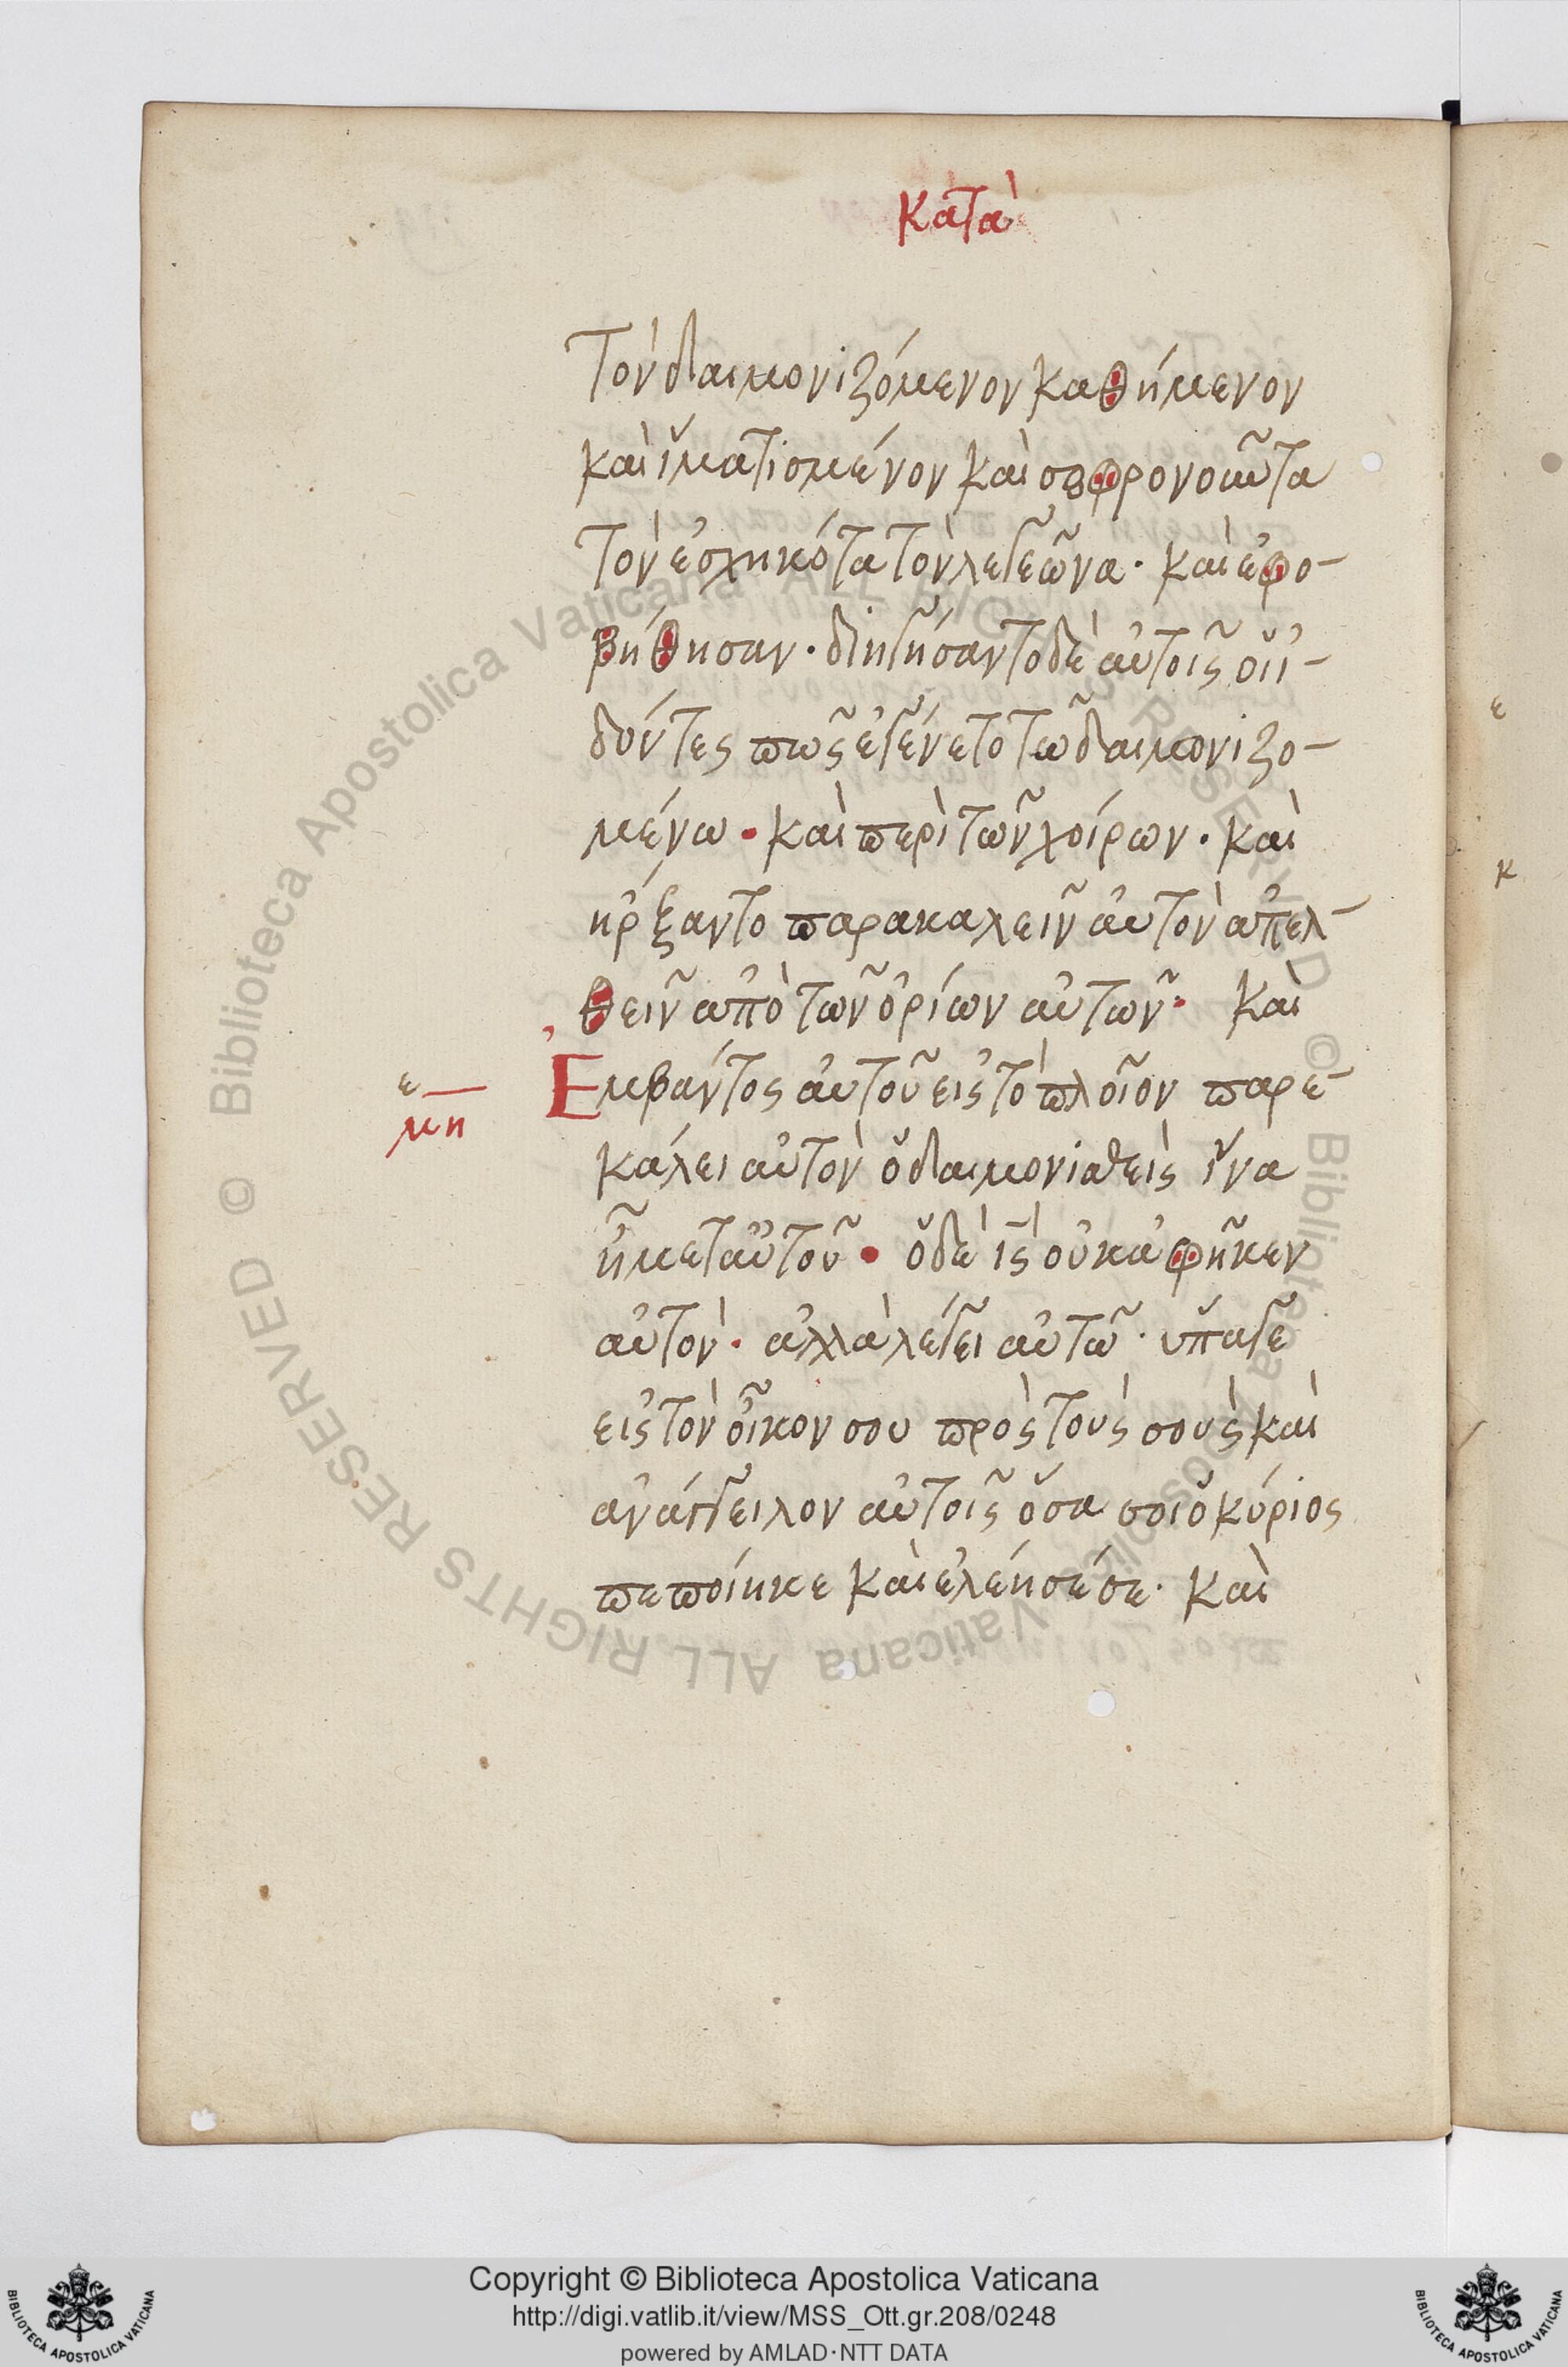 Κατὰ
Τὸν δαιμονιζόμενον καθήμενον
καὶ ἱματισμένον καὶ σωφρονοῦντα
τὸν ἐσχηκότα τὸν λεγεῶνα· καὶ ἐφο-
βήθησαν· διηγήσαντο δὲ αὐτοῖς οἱ ἰ-
δόντες πῶς ἐγένετο τῶ δαιμονιζο-
μένω· καὶ περὶ τῶν χοίρων· καὶ
ἤρξαντο παρακαλεῖν αὐτὸν ἀπελ-
θεῖν ἀπὸ τῶν ὁρίων αὐτῶν· καὶ
Ἐμβάντος αὐτοῦ εἰς τὸ πλοῖον παρε-
κάλει αὐτὸν ὁ δαιμονιαθεὶς ἵνα
ἦ μετ αὐτοῦ· ὁ δὲ ις οὐκ ἀφῆκεν
αὐτόν· ἀλλὰ λέγει αὐτῶ· ὕπαγε
εἰς τὸν οἶκον σου πρὸς τοὺς σοὺς καὶ
ἀνάγγειλον αὐτοῖς ὅσα σοι ὁ κύριος
πεποίηκε καὶ ἐλέησέ σε· καὶ
ε
μη
ε
κ
Copyright © Biblioteca Apostolica Vaticana
http://digi.vatlib.it/view/MSS_Ott.gr.208/0248
powered by AMLAD·NTT DATA
BIBLIOTECA APOSTOLICA VATICANA
BIBLIOTECA APOSTOLICA VATICANA
© Biblioteca Apostolica Vaticana ALL RIGHTS RESERVED © Biblioteca Apostolica Vaticana ALL RIGHTS RESERVED